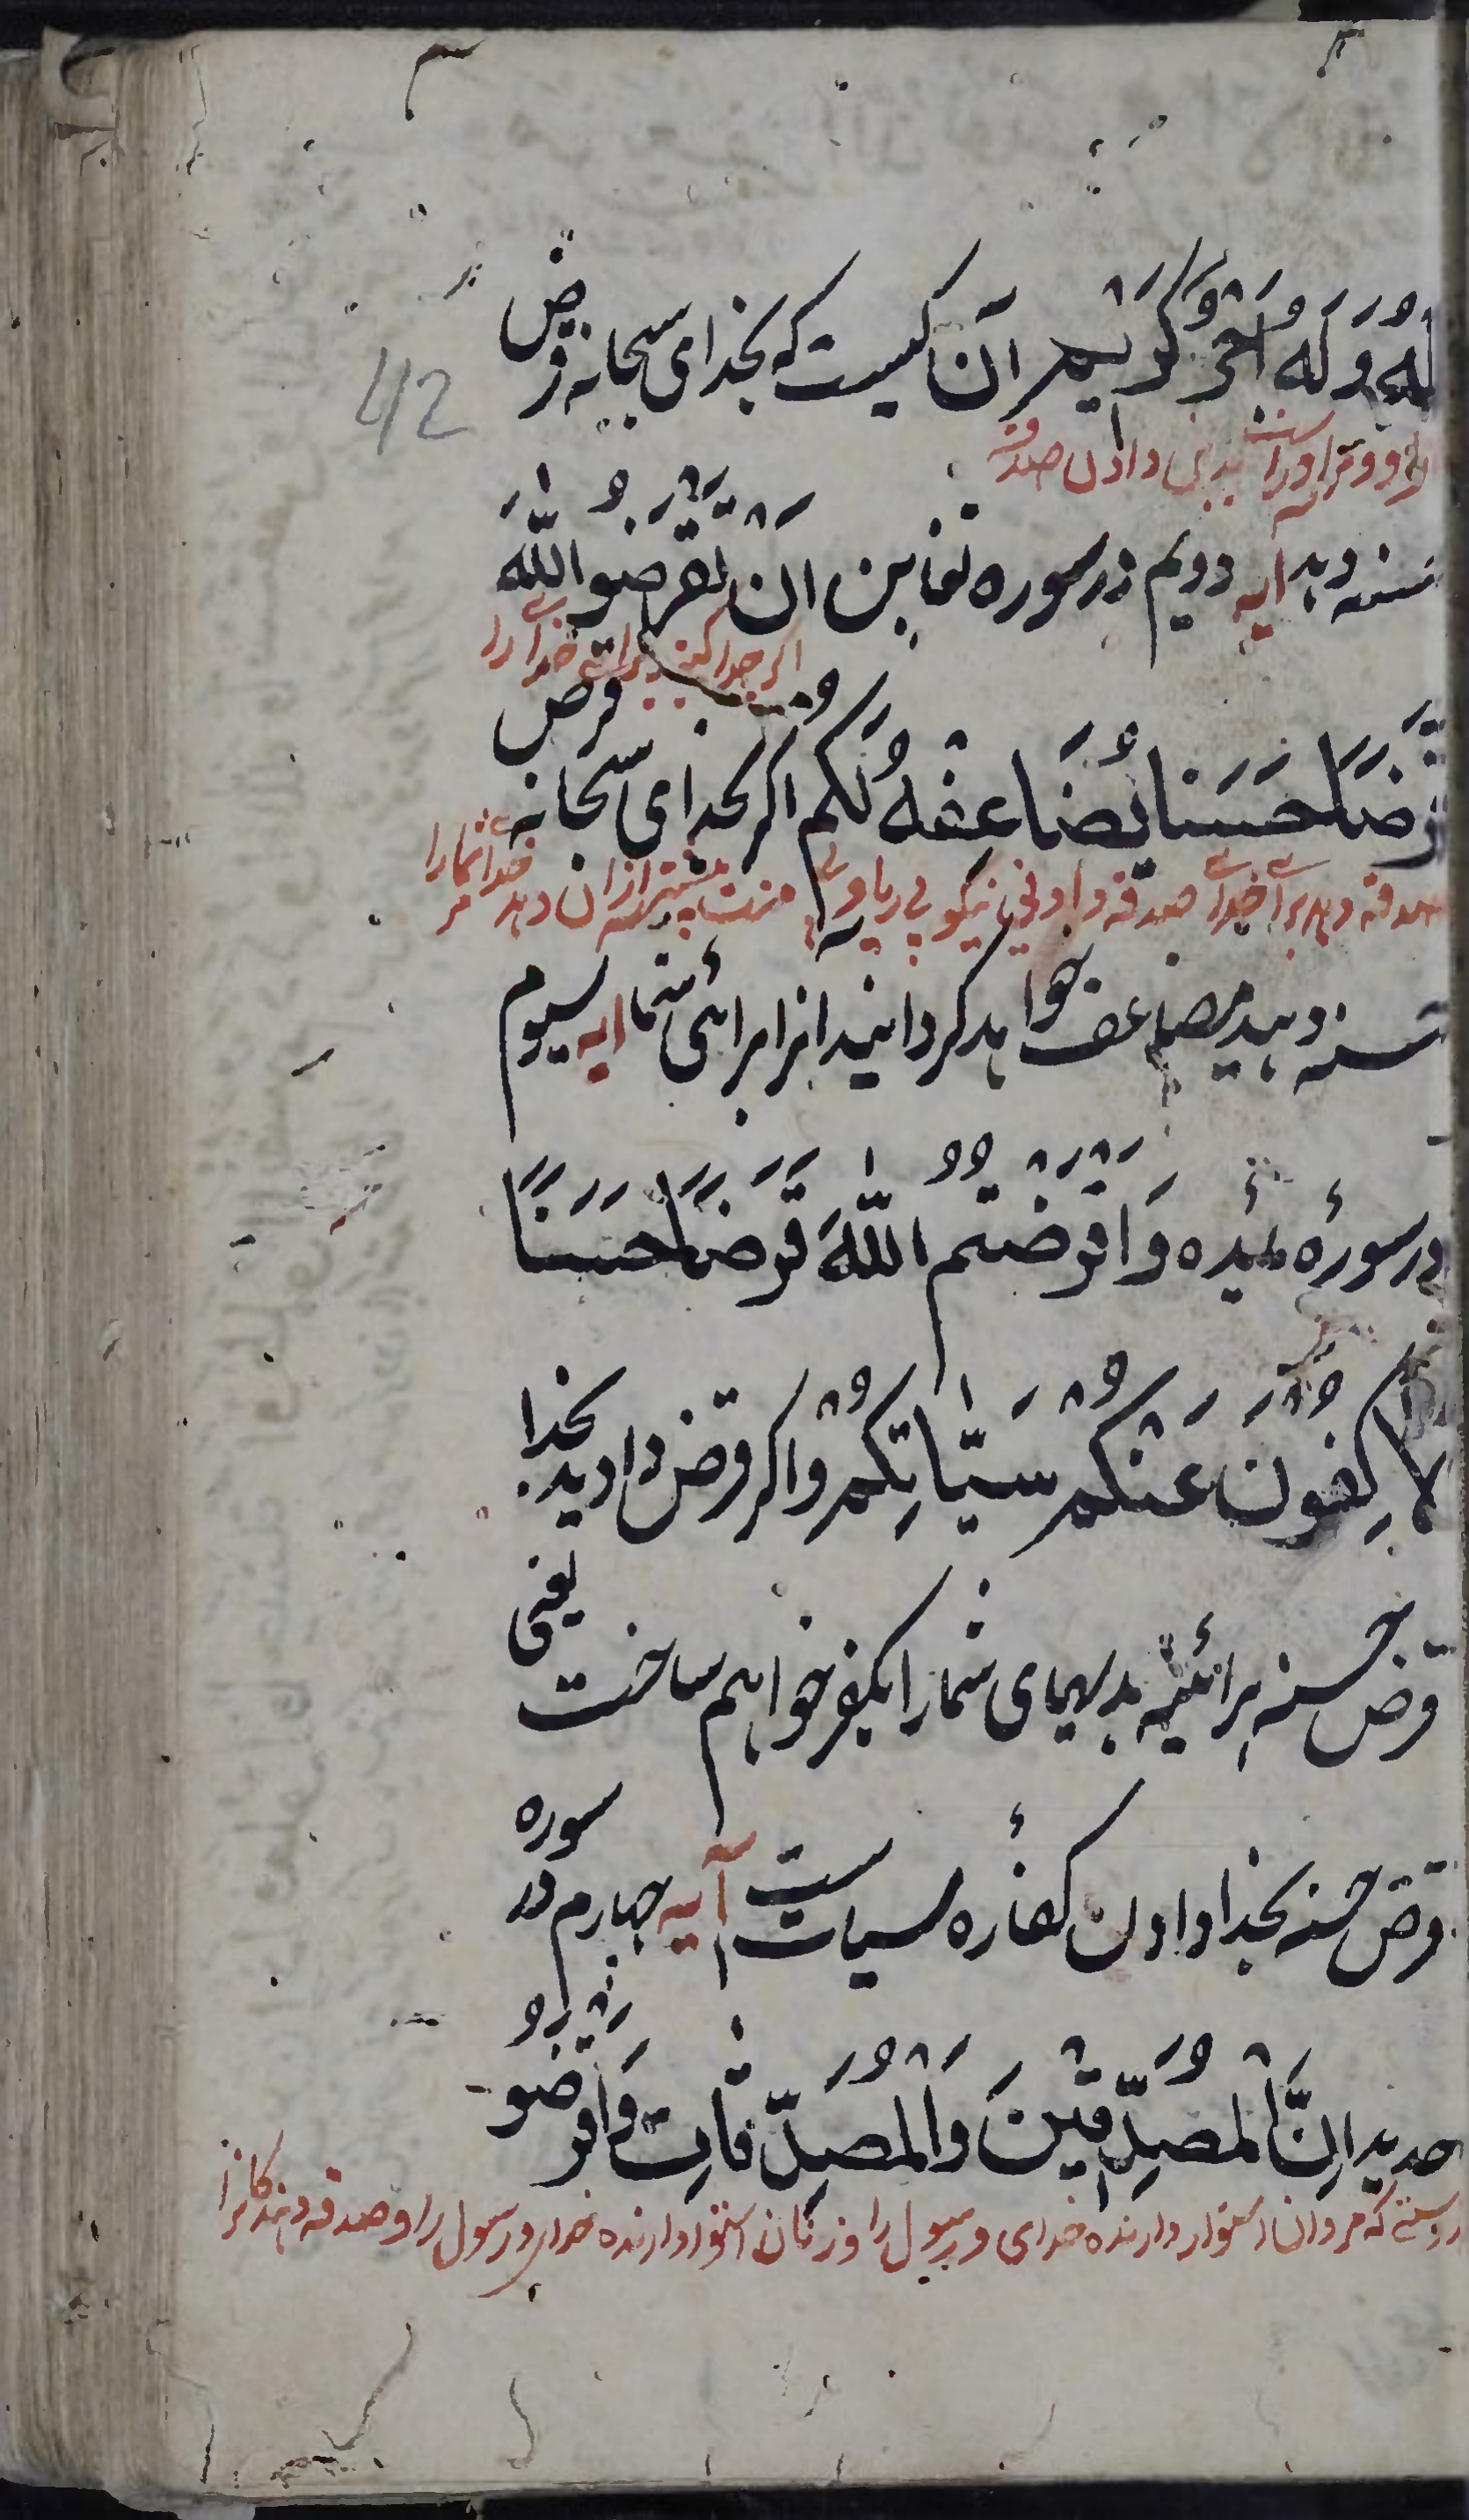 لَهُ وَلَهُ اَجْرٌ كَرِيْمٌ آن کیست که بخدای سبحانه قرض
42
مر او را سنت بدین دادن صدقه
حسنه دهد آیه دویم در سوره تغابن اِنْ تُقْرِضُوا اللّٰهَ
اگر جدا کنید برای خدا را
قَرْضًا حَسَنًا يُضَاعِفْهُ لَكُمْ اگر بخدای سبحانه قرض
صدقه دهید برای خدای صدقه دادنی نیکو بی ریا و بی منت بیشتر از آن دهد خدا شما را
حسنه دهید مضاعف خواهد گردانید انرا برائی شما ایه سیوم
در سورهٔ مائده وَاَقْرَضْتُمُ اللّٰهَ قَرْضًا حَسَنًا
لَاُكَفِّرَنَّ عَنْكُمْ سَيِّاٰتِكُمْ و اگر قرض دادید بخدا
قرض حسنه هرائینه بدیهای شما را بکفر خواهم ساخت یعنی
قرض حسنه بخدا دادن کفارهٔ سیات ست آیه چهارم در سوره
حدید اِنَّ الْمُصَّدِّقِيْنَ وَالْمُصَّدِّقَاتِ وَاَقْرَضُوا
راستی که مردان استوار دارنده خدای و رسول را و زنان استوار دارنده خدای و رسول را و صدقه دهندگانرا